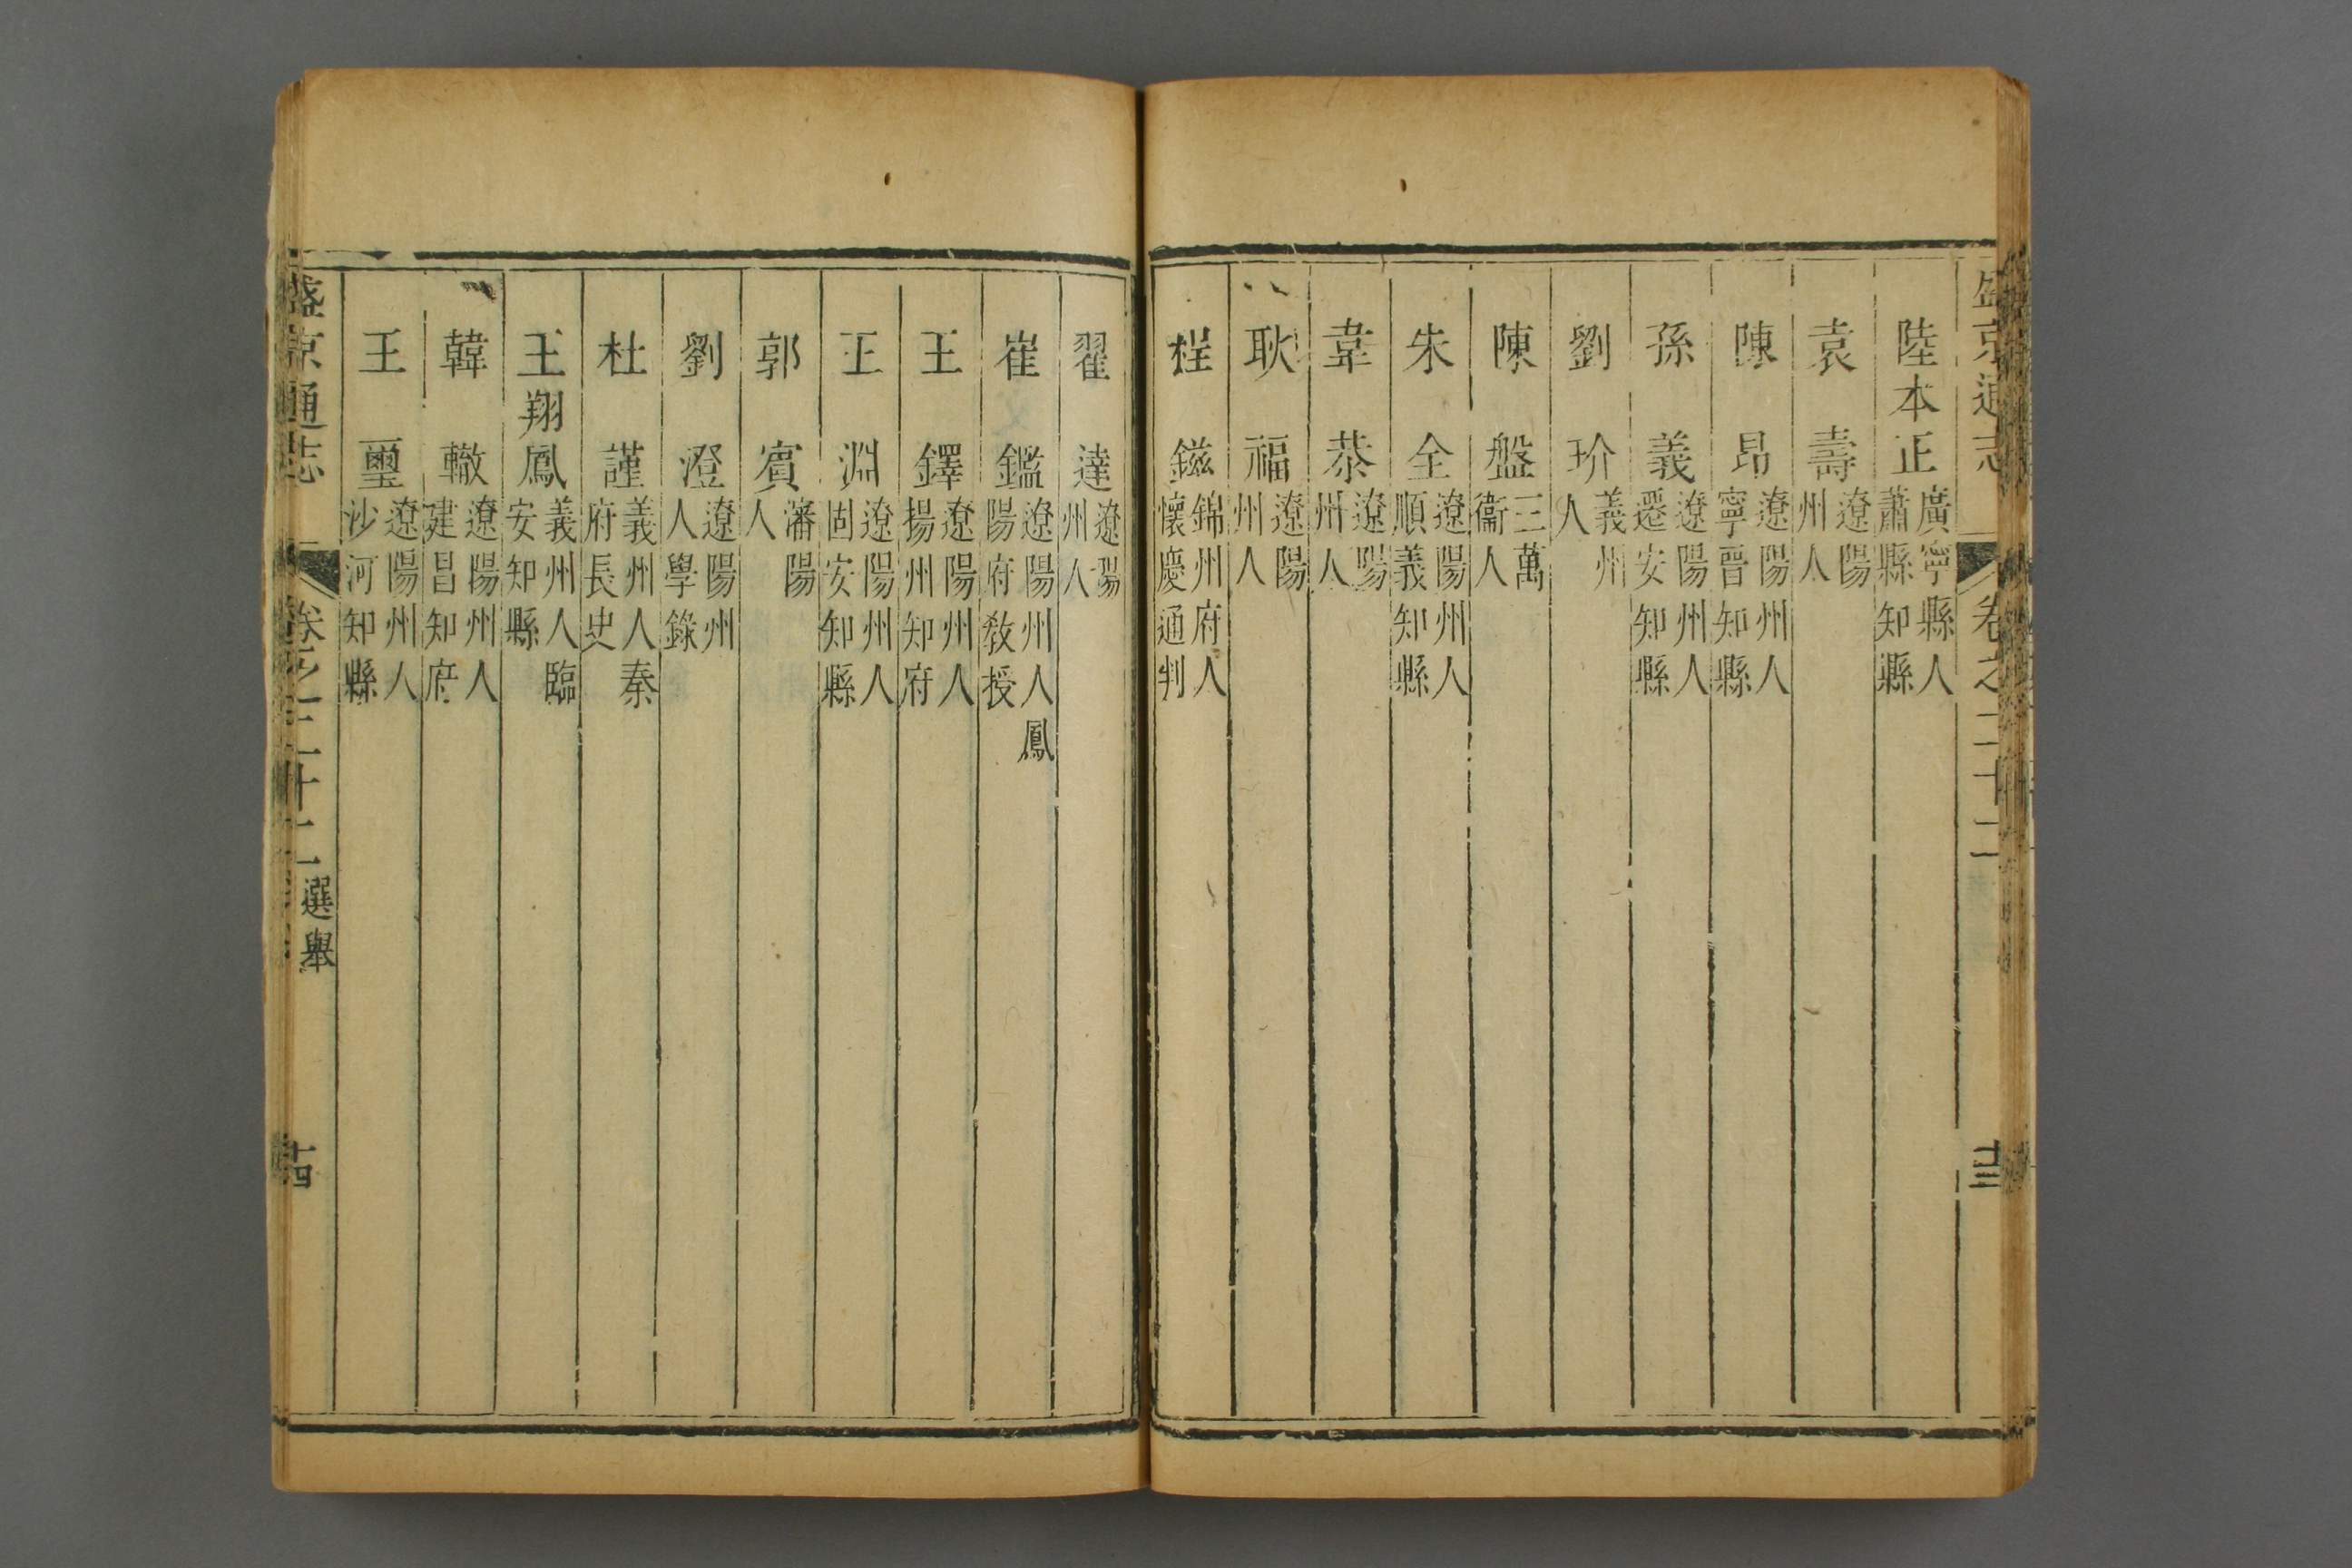 盛京通志 卷之二十二 十三
陸本正 廣寧縣人蕭縣知縣
袁壽 遼陽州人
陳昂 遼陽州人寧晉知縣
孫義 遼陽州人遷安知縣
劉玠 義州人
陳盤 三萬衞人
朱全 遼陽州人順義知縣
韋恭 遼陽州人
耿福 遼陽州人
程鎡 錦州府人懷慶通判
翟達 遼陽州人
崔鑑 遼陽州人鳳陽府敎授
王鐸 遼陽州人揚州知府
王淵 遼陽州人固安知縣
郭賓 瀋陽人
劉澄 遼陽州人學錄
杜謹 義州人秦府長史
王翔鳳 義州人臨安知縣
韓轍 遼陽州人建昌知府
王璽 遼陽州人沙河知縣
盛京通志 卷之二十二 選舉 十四